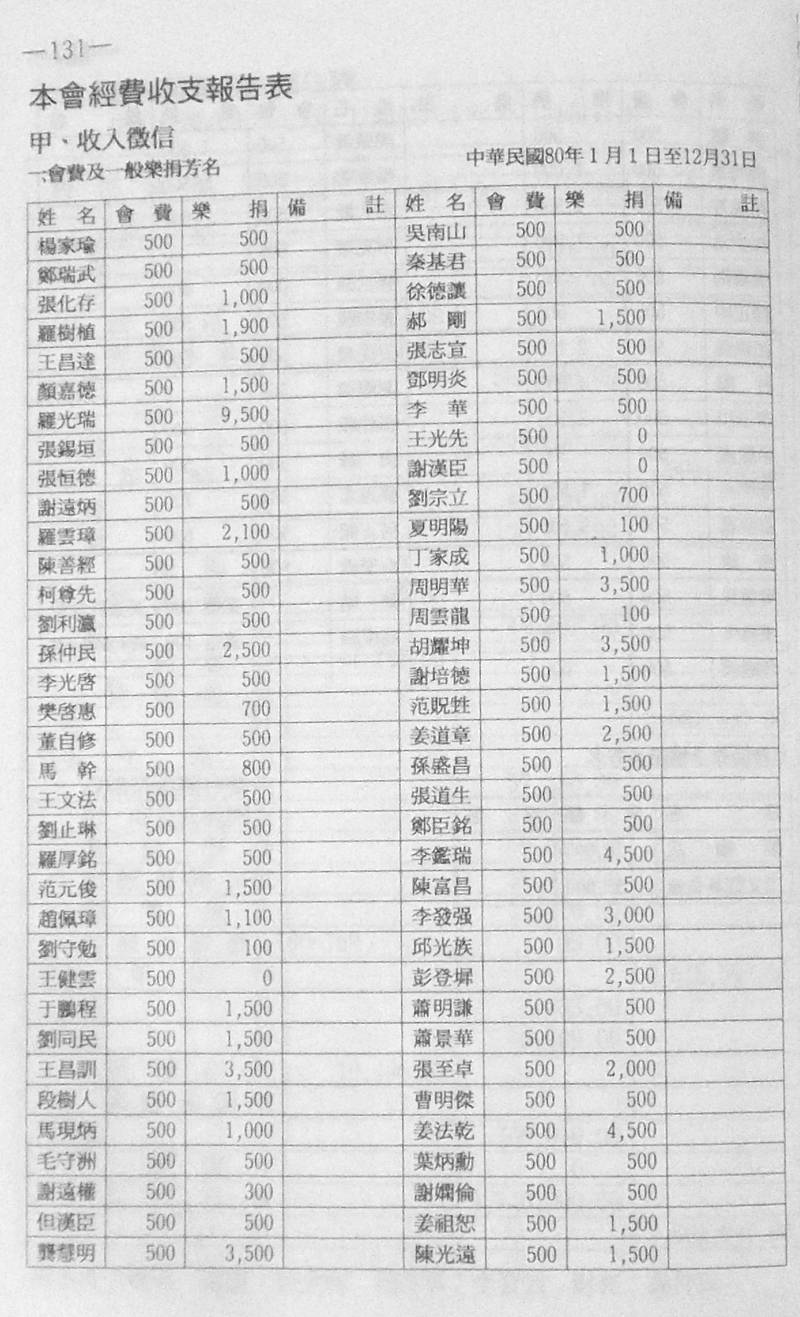 —131—
本會經費收支報告表
甲、收入徵信
一、會費及一般樂捐芳名
中華民國80年1月1日至12月31日
姓名 會費 樂捐 備註 姓名 會費 樂捐 備註
楊家瑜 500 500 吳南山 500 500
鄭瑞武 500 500 秦基君 500 500
張化存 500 1,000 徐德讓 500 500
羅樹植 500 1,900 郝剛 500 1,500
王昌達 500 500 張志宣 500 500
顏嘉德 500 1,500 鄧明炎 500 500
羅光瑞 500 9,500 李華 500 500
張錫垣 500 500 王光先 500 0
張恒德 500 1,000 謝漢臣 500 0
謝遠炳 500 500 劉宗立 500 700
羅雲璋 500 2,100 夏明陽 500 100
陳善經 500 500 丁家成 500 1,000
柯尊先 500 500 周明華 500 3,500
劉利瀛 500 500 周雲龍 500 100
孫仲民 500 2,500 胡耀坤 500 3,500
李光啓 500 500 謝培德 500 1,500
樊啓惠 500 700 范貺甡 500 1,500
董自修 500 500 姜道章 500 2,500
馬幹 500 800 孫盛昌 500 500
王文法 500 500 張道生 500 500
劉止琳 500 500 鄭臣銘 500 500
羅厚銘 500 500 李鑑瑞 500 4,500
范元俊 500 1,500 陳富昌 500 500
趙佩璋 500 1,100 李發强 500 3,000
劉守勉 500 100 邱光族 500 1,500
王健雲 500 0 彭登墀 500 2,500
于鵬程 500 1,500 蕭明謙 500 500
劉同民 500 1,500 蕭景華 500 500
王昌訓 500 3,500 張至卓 500 2,000
段樹人 500 1,500 曹明傑 500 500
馬現炳 500 1,000 姜法乾 500 4,500
毛守洲 500 500 葉炳勳 500 500
謝遠權 500 300 謝嫻倫 500 500
但漢臣 500 500 姜祖恕 500 1,500
龔慧明 500 3,500 陳光遠 500 1,500